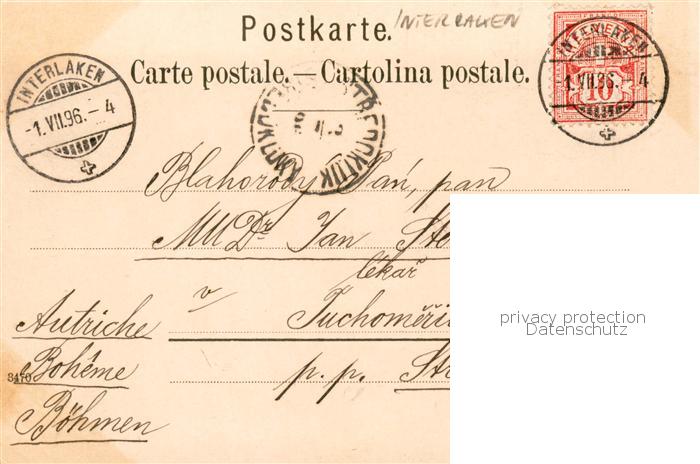 Postkarte. INTERLAKEN
Carte postale. — Cartolina postale.
INTERLAKEN
-1.VII.96.-4
INTERLAKEN
1.VII.96. 4
10
Blahorodý Pán, pan
MUDr Jan
lékař
v Tuchoměři
p. p.
Autriche
Bohême
Böhmen
3470
privacy protection
Datenschutz